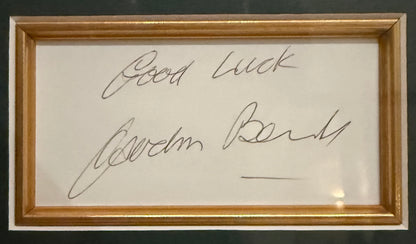 Good Luck
Gordon Banks